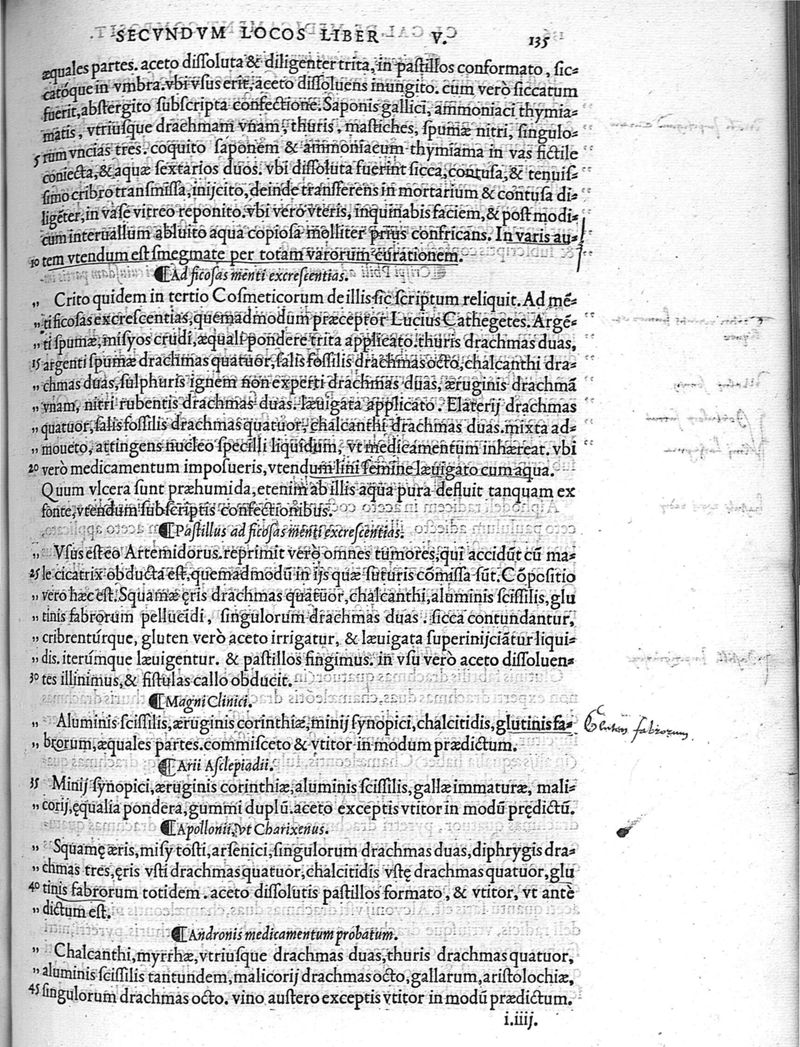 SECVNDVM LOCOS LIBER V. 135
æquales partes. aceto dissoluta & diligenter trita, in pastillos conformato, sic-
catóque in vmbra. vbi vsus erit, aceto dissoluens inungito. cum verò siccatum
fuerit, abstergito subscripta confectione. Saponis gallici, ammoniaci thymia-
matis, vtriusque drachmam vnam, thuris, mastiches, spumæ nitri, singulo-
5 rum vncias tres. coquito saponem & ammoniacum thymiama in vas fictile
coniecta, & aquæ sextarios duos. vbi dissoluta fuerint sicca, contusa, & tenuis-
simo cribro transmissa, inijcito, deinde transferens in mortarium & contusa di-
ligẽter, in vase vitreo reponito. vbi vero vteris, inquinabis faciem, & post modi-
cum interuallum abluito aqua copiosa molliter prius confricans. In varis au-
10 tem vtendum est smegmate per totam varorum curationem.
¶Ad ficosas menti excrescentias.
„ Crito quidem in tertio Cosmeticorum de illis sic scriptum reliquit. Ad mẽ-
„ ti ficosas excrescentias, quemadmodum præceptor Lucius Cathegetes. Argẽ-
„ ti spumæ, misyos crudi, æquali pondere trita applicato. thuris drachmas duas,
15 argenti spumæ drachmas quatuor, salis fossilis drachmas octo, chalcanthi dra-
„ chmas duas, sulphuris ignem non experti drachmas duas, æruginis drachmã
„ vnam, nitri rubentis drachmas duas. læuigata applicato. Elaterij drachmas
„ quatuor, salis fossilis drachmas quatuor, chalcanthi drachmas duas. mixta ad-
„ moueto, attingens nucleo specilli liquidum, vt medicamentum inhæreat. vbi
20 verò medicamentum imposueris, vtendum lini semine læuigato cum aqua.
Quum vlcera sunt præhumida, etenim ab illis aqua pura defluit tanquam ex
fonte, vtendum subscriptis confectionibus.
¶Pastillus ad ficosas menti excrescentias.
„ Vsus est eo Artemidorus. reprimit verò omnes tumores, qui accidũt cũ ma-
25 le cicatrix obducta est, quemadmodũ in ijs quæ suturis cõmissa sũt. Cõpositio
„ vero hæc est. Squamæ ęris drachmas quatuor, chalcanthi, aluminis scissilis, glu
„ tinis fabrorum pellucidi, singulorum drachmas duas. sicca contundantur,
„ cribrentúrque, gluten verò aceto irrigatur, & læuigata superinijciãtur liqui-
„ dis. iterúmque læuigentur. & pastillos fingimus. in vsu verò aceto dissoluen-
30 tes illinimus, & fistulas callo obducit.
¶Magni Clinici.
„ Aluminis scissilis, æruginis corinthiæ, minij synopici, chalcitidis, glutinis fa-
„ brorum, æquales partes. commisceto & vtitor in modum prædictum.
Gluten fabrorum
¶Arii Asclepiadii.
35 Minij synopici, æruginis corinthiæ, aluminis scissilis, gallæ immaturæ, mali-
„ corij, ęqualia pondera, gummi duplũ. aceto exceptis vtitor in modũ prędictũ.
¶Apollonii, vt Charixenus.
„ Squamę æris, misy tosti, arsenici, singulorum drachmas duas, diphrygis dra-
„ chmas tres, ęris vsti drachmas quatuor, chalcitidis vstę drachmas quatuor, glu
40 tinis fabrorum totidem. aceto dissolutis pastillos formato, & vtitor, vt antè
„ dictum est.
¶Andronis medicamentum probatum.
„ Chalcanthi, myrrhæ, vtriusque drachmas duas, thuris drachmas quatuor,
„ aluminis scissilis tantundem, malicorij drachmas octo, gallarum, aristolochiæ,
45 singulorum drachmas octo. vino austero exceptis vtitor in modũ prædictum.
i.iiij.